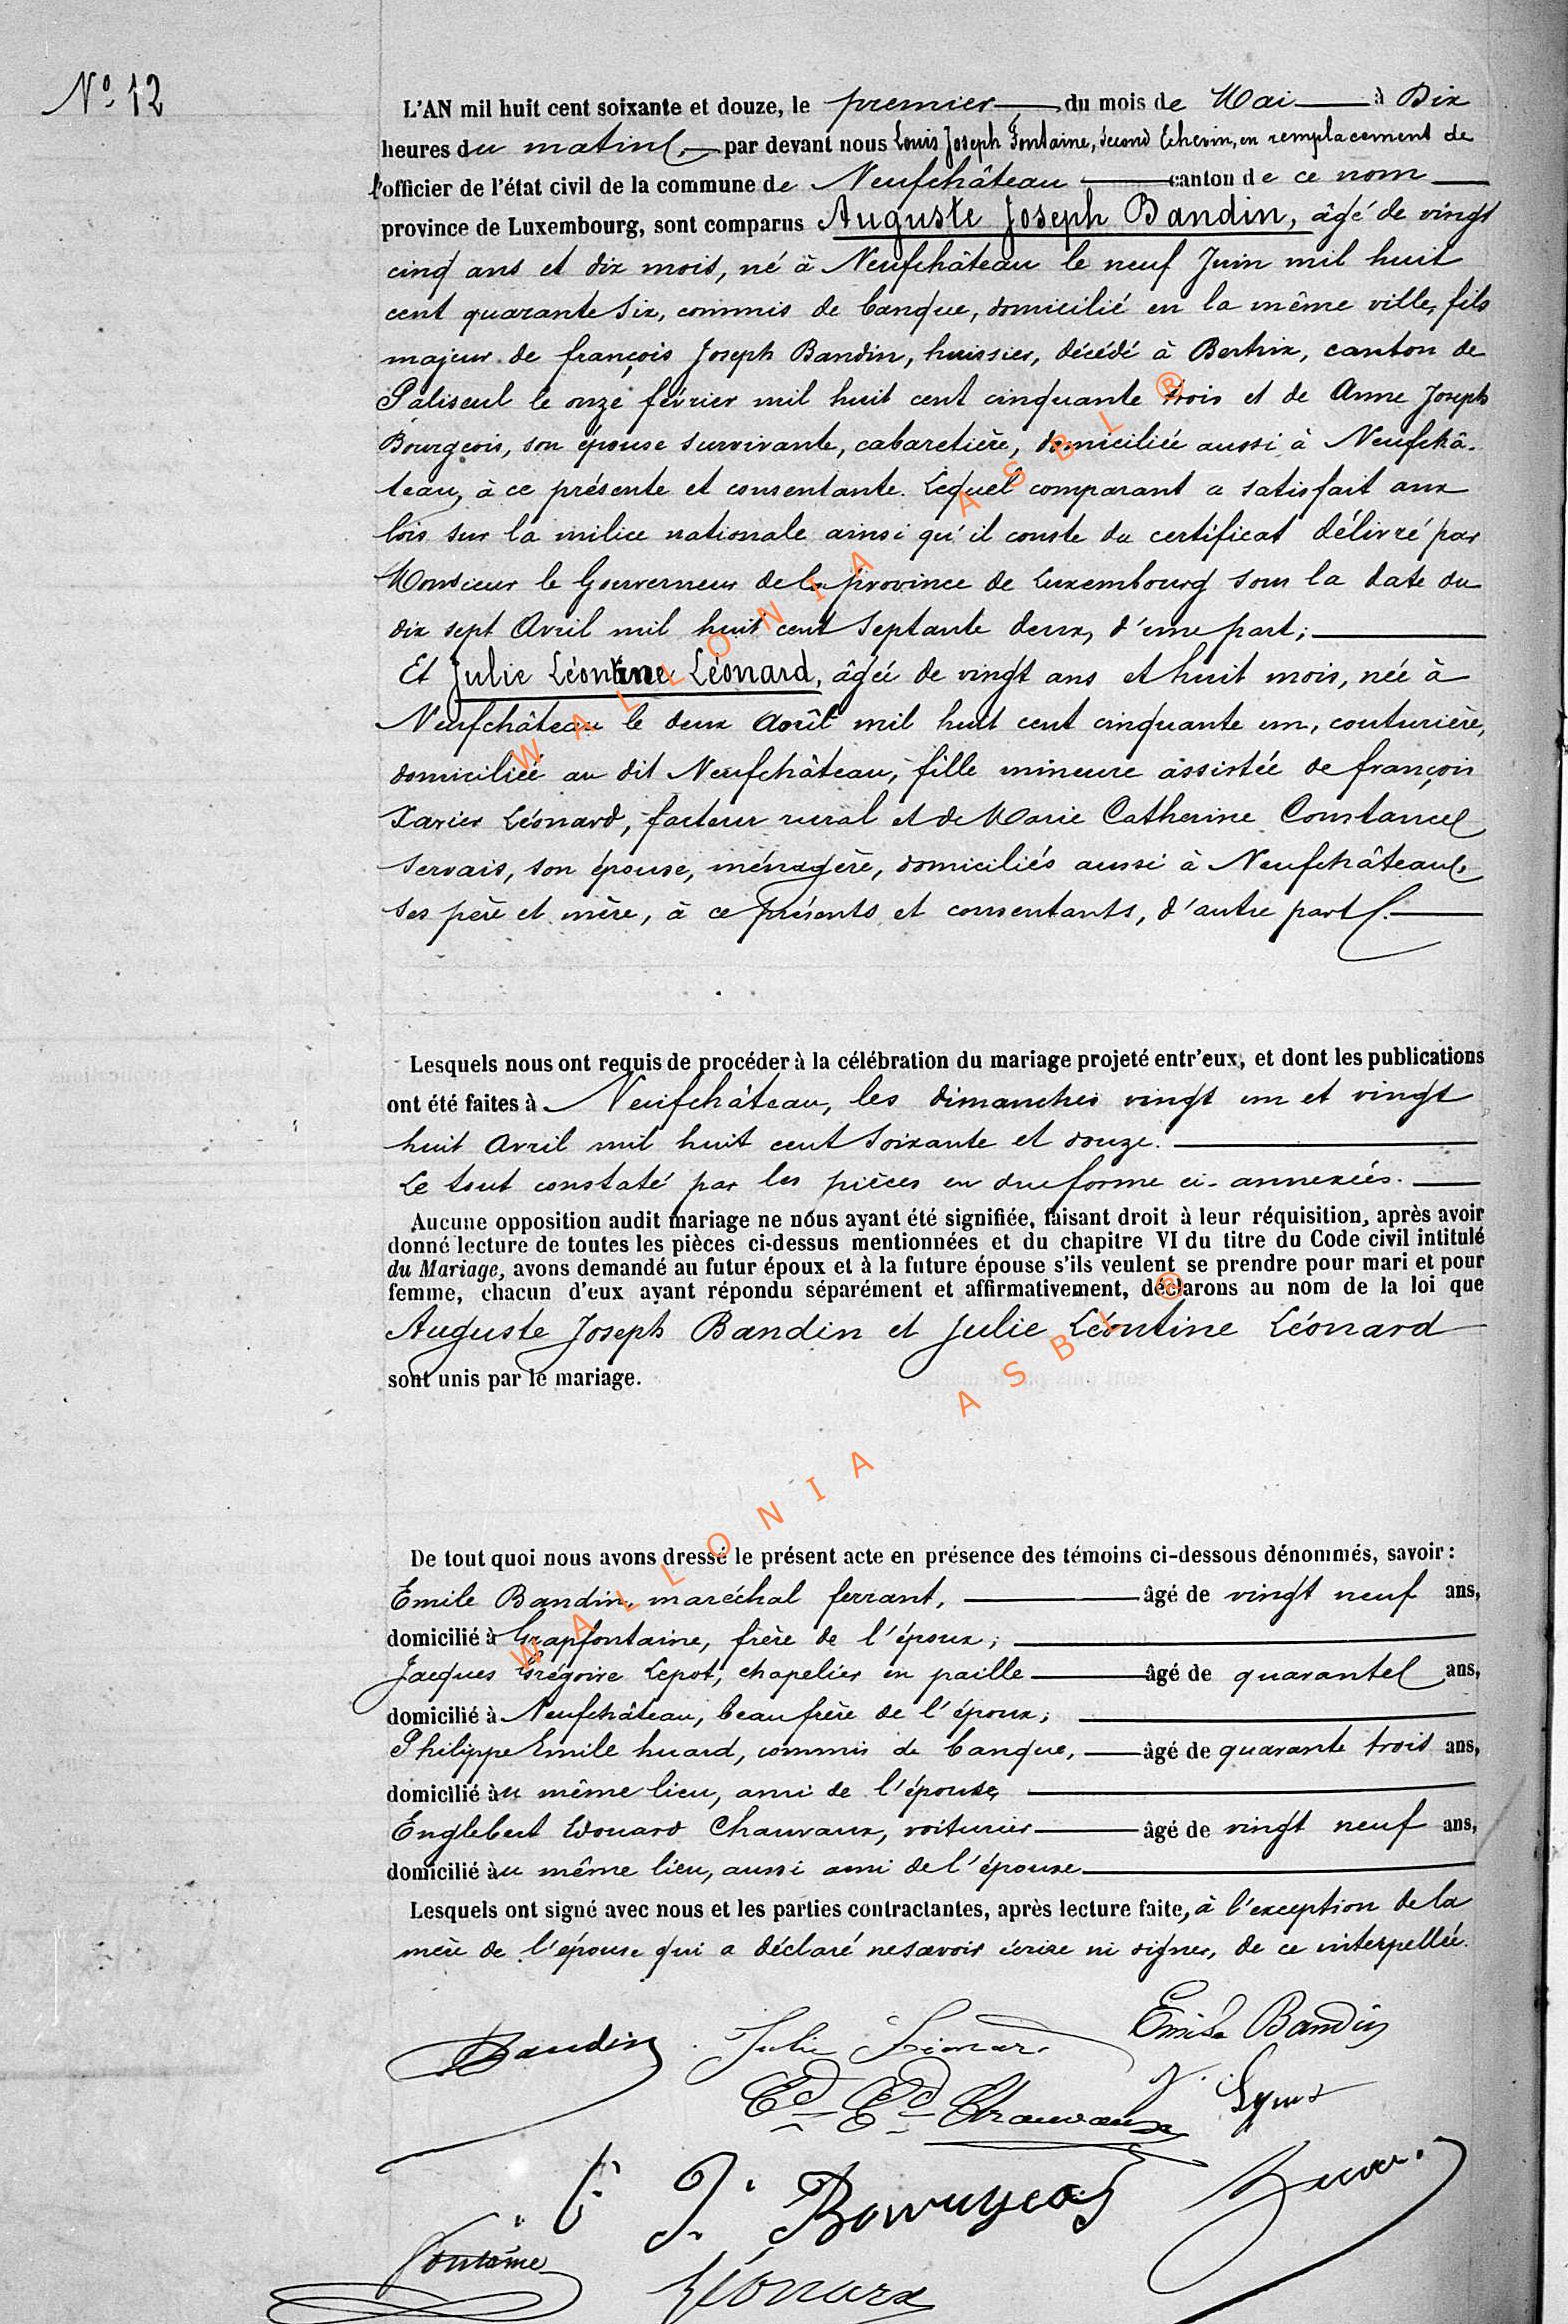 N° 12
L'AN mil huit cent soixante et douze, le premier du mois de Mai à Dix
heures du matin, par devant nous Louis Joseph Fontaine, second Echevin, en remplacement de
l'officier de l'état civil de la commune de Neufchâteau canton de ce nom
province de Luxembourg, sont comparus Auguste Joseph Bandin, âgé de vingt
cinq ans et dix mois, né à Neufchâteau le neuf Juin mil huit
cent quarante six, commis de banque, domicilié en la même ville, fils
majeur de françois Joseph Bandin, huissier, décédé à Bertrix, canton de
Paliseul le onze février mil huit cent cinquante trois et de Anne Joseph
Bourgeois, son épouse survivante, cabaretière, domiciliée aussi à Neufchâ-
teau, à ce présente et consentante. Lequel comparant a satisfait aux
lois sur la milice nationale ainsi qu'il conste du certificat délivré par
Monsieur le Gouverneur de la province de Luxembourg sous la date du
dix sept Avril mil huit cent septante deux, d'une part;
Et Julie Léontine Léonard, âgée de vingt ans et huit mois, née à
Neufchâteau le deux Août mil huit cent cinquante un, couturière,
domiciliée au dit Neufchâteau, fille mineure assistée de françois
Xavier Léonard, facteur rural et de Marie Catherine Constance
Servais, son épouse, ménagère, domiciliés aussi à Neufchâteau,
ses père et mère, à ce présents et consentants, d'autre part.
Lesquels nous ont requis de procéder à la célébration du mariage projeté entr'eux, et dont les publications
ont été faites à Neufchâteau, les dimanches vingt un et vingt
huit Avril mil huit cent soixante et douze.
Le tout constaté par les pièces en due forme ci-annexées.
Aucune opposition audit mariage ne nous ayant été signifiée, faisant droit à leur réquisition, après avoir
donné lecture de toutes les pièces ci-dessus mentionnées et du chapitre VI du titre du Code civil intitulé
du Mariage, avons demandé au futur époux et à la future épouse s'ils veulent se prendre pour mari et pour
femme, chacun d'eux ayant répondu séparément et affirmativement, déclarons au nom de la loi que
Auguste Joseph Bandin et Julie Léontine Léonard
sont unis par le mariage.
De tout quoi nous avons dressé le présent acte en présence des témoins ci-dessous dénommés, savoir :
Emile Bandin, maréchal ferrant, âgé de vingt neuf ans,
domicilié à Grapfontaine, frère de l'époux;
Jacques Grégoire Lepot, chapelier en paille âgé de quarante ans,
domicilié à Neufchâteau, beau frère de l'époux;
Philippe Emile huard, commis de banque, âgé de quarante trois ans,
domicilié àu même lieu, ami de l'épouse,
Englebert Edouard Chauvaux, voiturier âgé de vingt neuf ans,
domicilié àu même lieu, aussi ami de l'épouse
Lesquels ont signé avec nous et les parties contractantes, après lecture faite, à l'exception de la
mère de l'épouse qui a déclaré ne savoir écrire ni signer, de ce interpellée.
Bandin Julie Léonard Emile Bandin
Ed Ed Chauvaux
J. Bourgeois
Fontaine Léonard
WALLONIA ASBL ®
WALLONIA ASBL ®